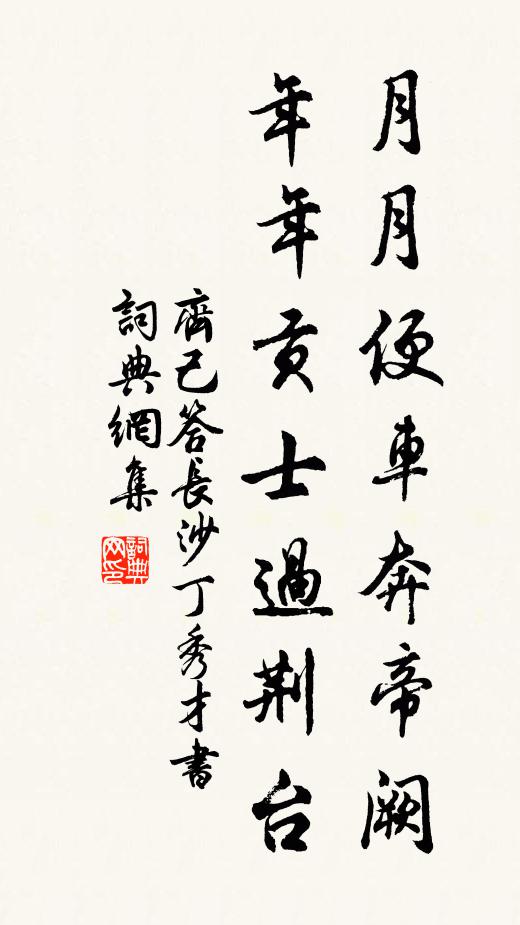 月月便車奔帝闕
年年貢士過荆台
齊己答長沙丁秀才書
詞典網集
詞典
网印